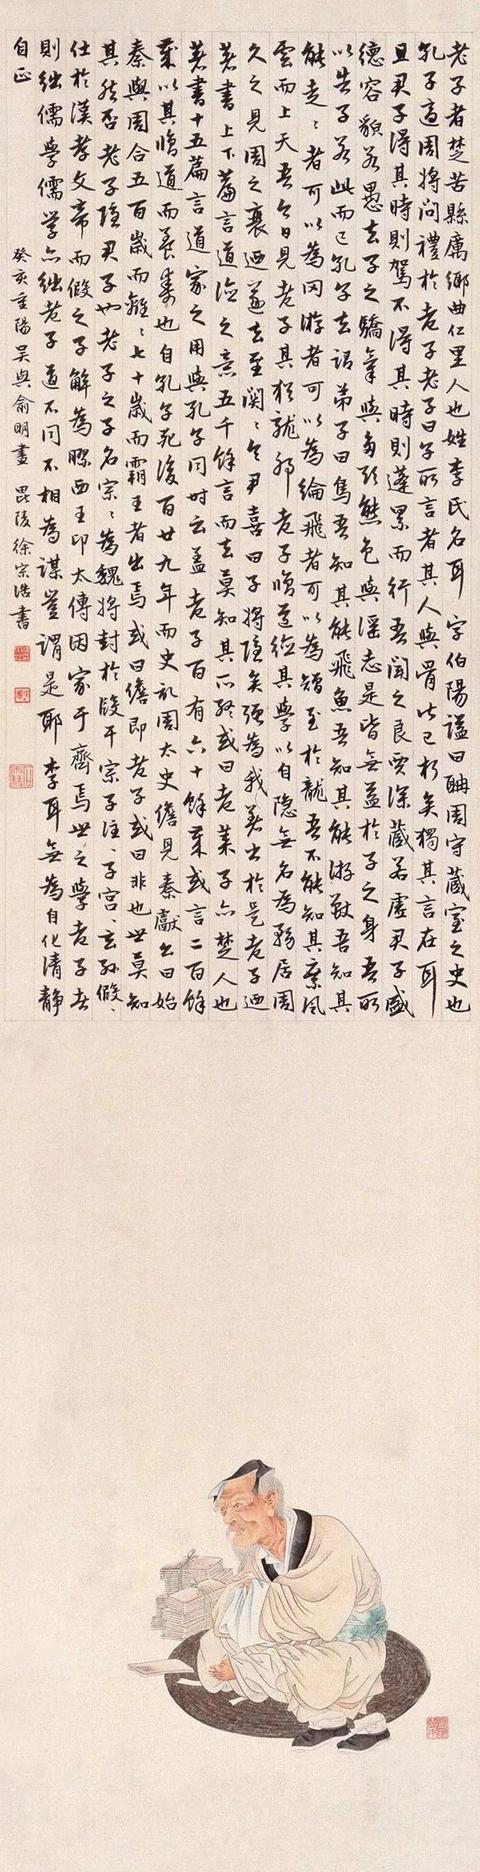 老子者楚苦縣厲鄉曲仁里人也姓李氏名耳字伯陽謚曰聃周守藏室之史也
孔子適周將問禮於老子老子曰子所言者其人與骨皆已朽矣獨其言在耳
且君子得其時則駕不得其時則蓬累而行吾聞之良賈深藏若虛君子盛
德容貌若愚去子之驕氣與多欲態色與淫志是皆無益於子之身吾所
以告子若此而已孔子去謂弟子曰鳥吾知其能飛魚吾知其能游獸吾知其
能走〻者可以為罔游者可以為綸飛者可以為矰至於龍吾不能知其乘風
雲而上天吾今日見老子其猶龍邪老子脩道德其學以自隱無名為務居周
久之見周之衰迺遂去至關〻令尹喜曰子將隱矣彊為我著書於是老子迺
著書上下篇言道德之意五千餘言而去莫知其所終或曰老萊子亦楚人也
著書十五篇言道家之用與孔子同時云蓋老子百有六十餘歲或言二百餘
歲以其脩道而養壽也自孔子死後百廿九年而史記周太史儋見秦獻公曰始
秦與周合五百歲而離〻七十歲而霸王者出焉或曰儋即老子或曰非也世莫知
其然否老子隱君子也老子之子名宗〻為魏將封於段干宗子注〻子宮〻玄孫假〻
仕於漢孝文帝而假之子解為膠西王卬太傅因家于齊焉世之學老子者
則絀儒學儒學亦絀老子道不同不相為謀豈謂是耶李耳無為自化清靜
自正
癸亥重陽吳興俞明畫 毘陵徐宗浩書